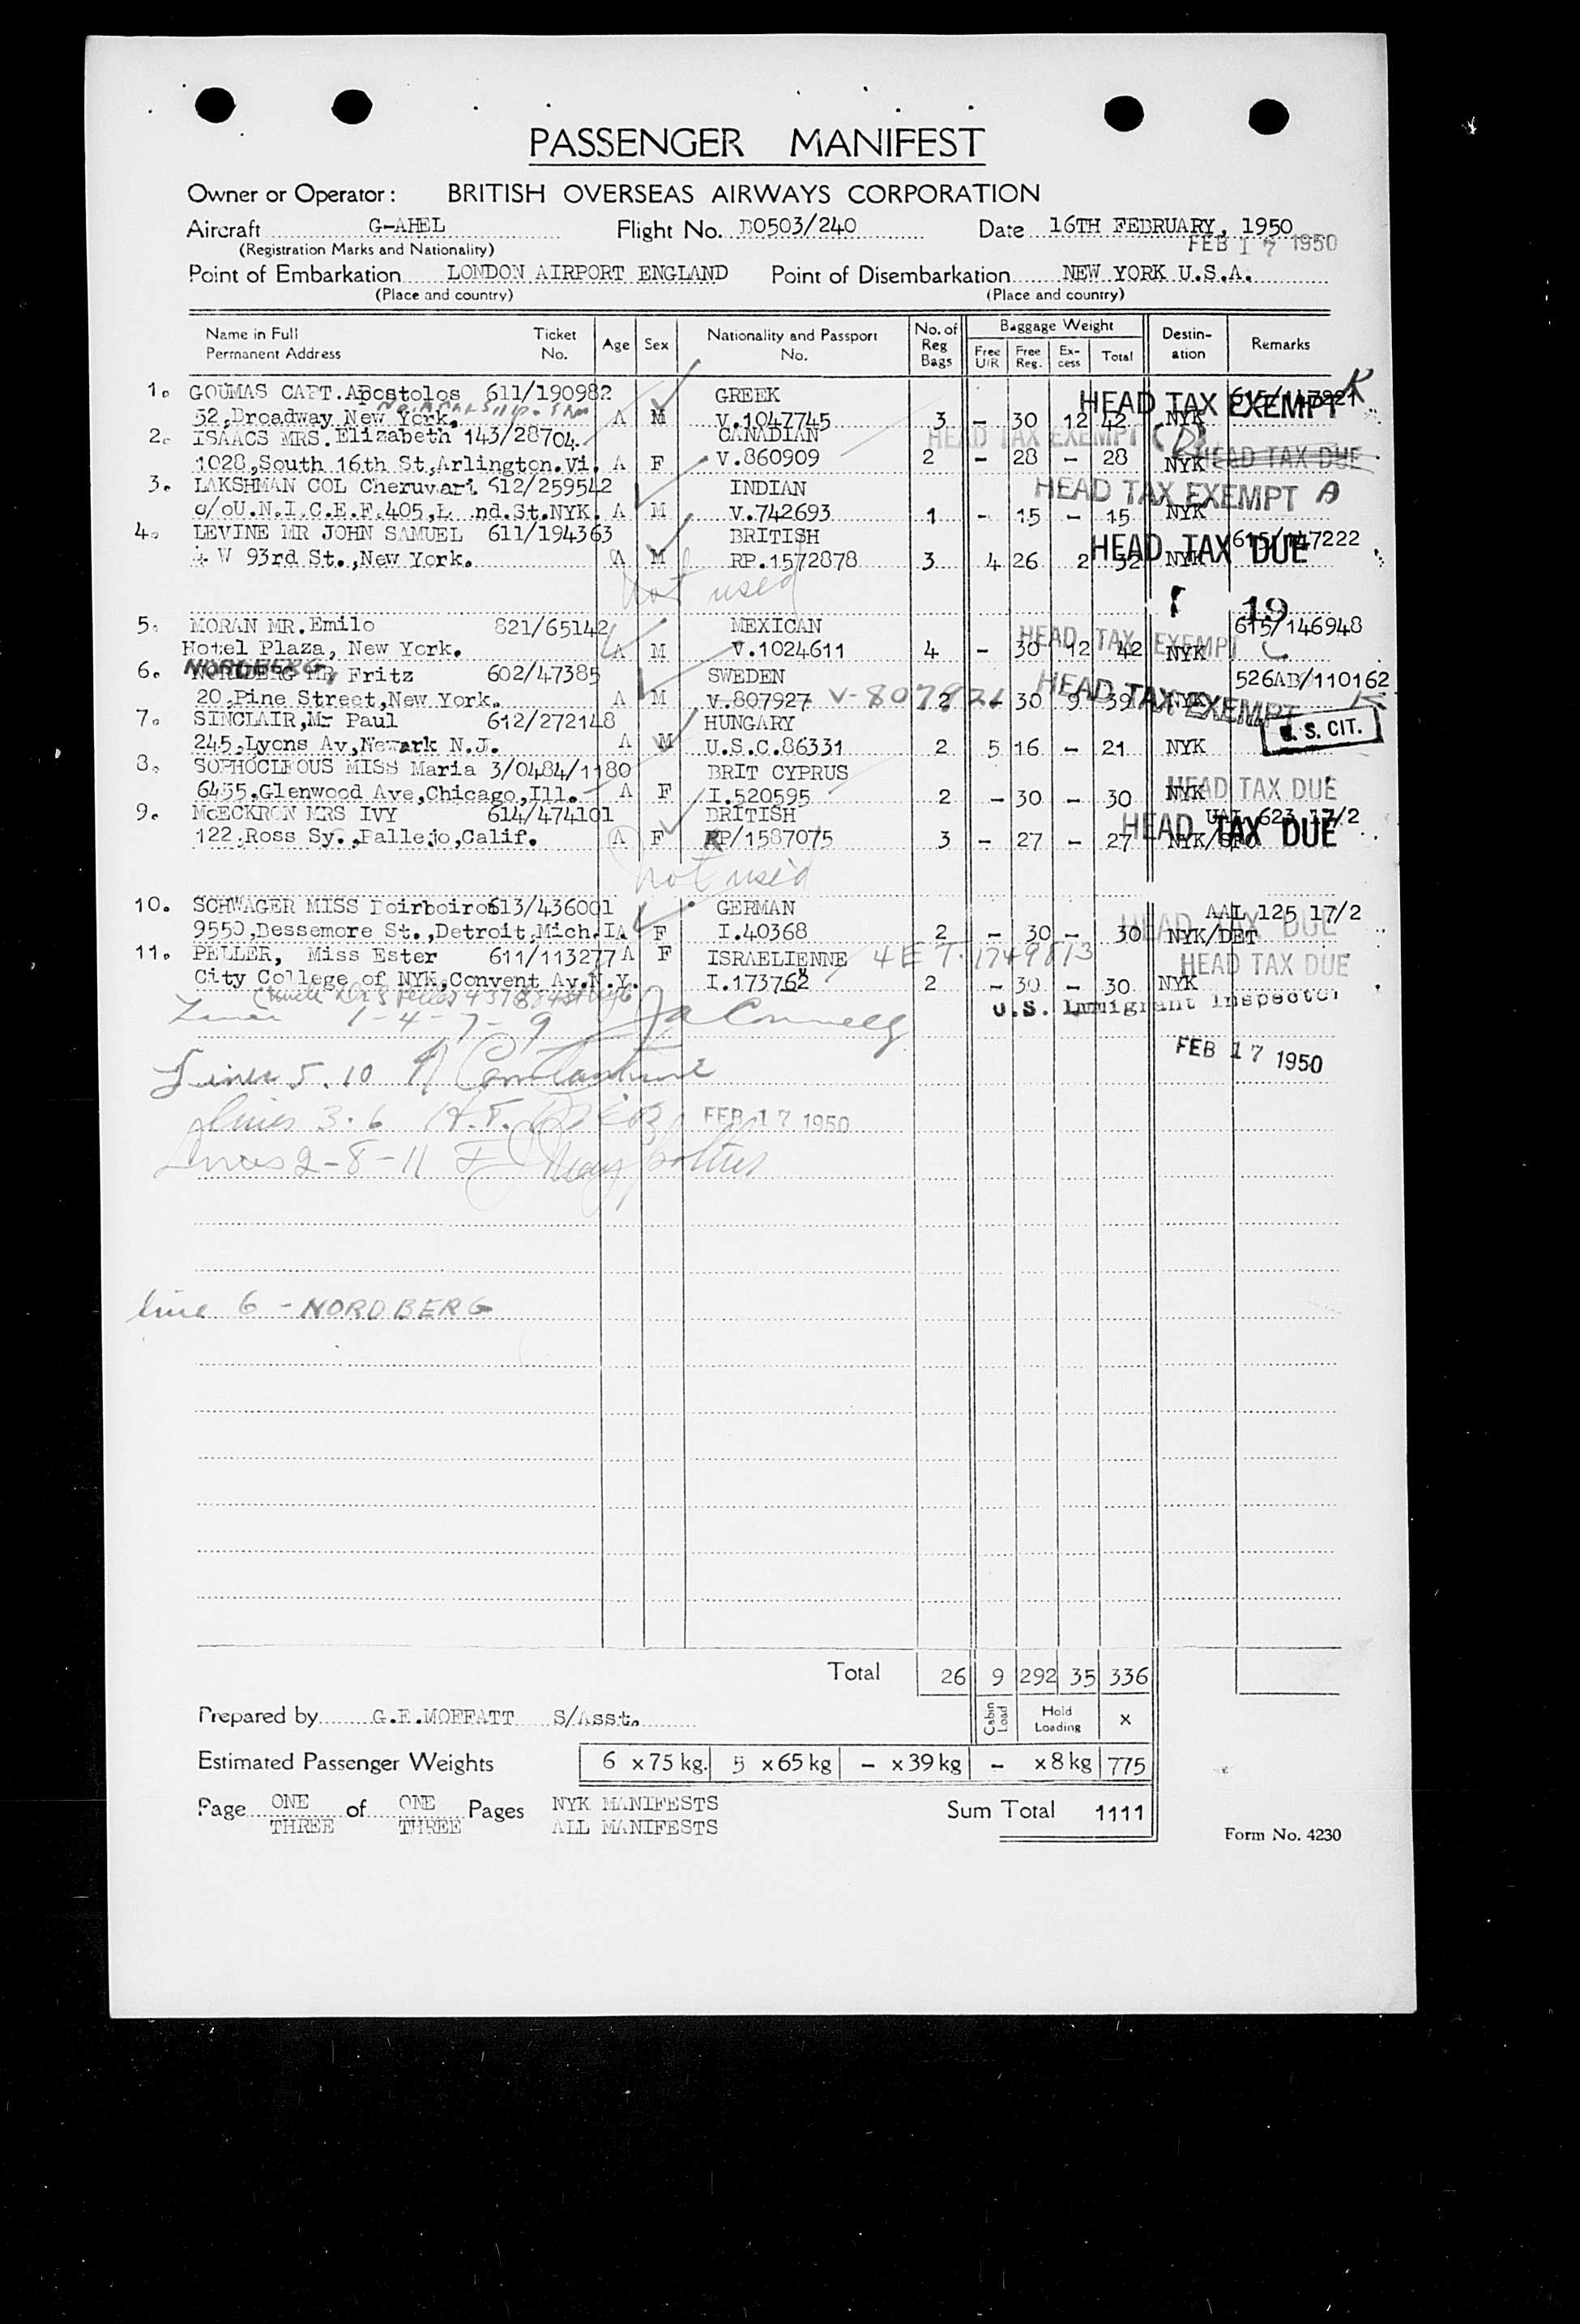 PASSENGER MANIFEST
Owner or Operator: BRITISH OVERSEAS AIRWAYS CORPORATION
Aircraft G-AHEL Flight No. B0503/240 Date 16TH FEBRUARY, 1950
(Registration Marks and Nationality) FEB 17 1950
Point of Embarkation LONDON AIRPORT ENGLAND Point of Disembarkation NEW YORK U.S.A.
(Place and country) (Place and country)
Name in Full Permanent Address Ticket No. Age Sex Nationality and Passport No. No. of Reg Bags Baggage Weight Free U/R Free Reg. Ex-cess Total Destin-ation Remarks
1. GOUMAS CAPT. Apostolos 611/190982 GREEK HEAD TAX EXEMPT K
52, Broadway New York. A M V.1047745 3 - 30 12 42 NYK
2. ISAACS MRS. Elizabeth 143/28704. CANADIAN HEAD TAX EXEMPT (D)
1028, South 16th St, Arlington. Vi. A F V.860909 2 - 28 - 28 NYK HEAD TAX DUE
3. LAKSHMAN COL Cheruvari 612/259542 INDIAN HEAD TAX EXEMPT A
c/o U.N.I.C.E.F. 405, nd. St. NYK. A M V.742693 1 - 15 - 15 NYK
4. LEVINE MR JOHN SAMUEL 611/194363 BRITISH HEAD TAX DUE 615/147222
4 W 93rd St., New York. A M RP.1572878 3 4 26 2 32 NYK
not used
19
5. MORAN MR. Emilo 821/65142 MEXICAN HEAD TAX EXEMPT C 615/146948
Hotel Plaza, New York. A M V.1024611 4 - 30 12 42 NYK
6. NORDBERG MR Fritz 602/47385 SWEDEN HEAD TAX EXEMPT 526AB/110162
20, Pine Street, New York. A M V.807927 V-807926 2 - 30 9 39 NYK K
7. SINCLAIR, Mr Paul 612/272148 HUNGARY U.S. CIT.
245, Lyons Av, Newark N.J. A M U.S.C.86331 2 5 16 - 21 NYK
8. SOPHOCLEOUS MISS Maria 3/0484/1180 BRIT CYPRUS HEAD TAX DUE
6455, Glenwood Ave, Chicago, Ill. A F I.520595 2 - 30 - 30 NYK
9. McECKRON MRS IVY 614/474101 BRITISH UAL 623 17/2 HEAD TAX DUE
122, Ross Sy., Pallejo, Calif. A F RP/1587075 3 - 27 - 27 NYK/SFO
not used
10. SCHWAGER MISS 613/436001 GERMAN AAL 125 17/2 HEAD TAX DUE
9550, Bessemore St., Detroit, Mich. IA F I.40368 2 - 30 - 30 NYK/DET
11. PELLER, Miss Ester 611/113277 A F ISRAELIENNE 4 E T. 1749813 HEAD TAX DUE
City College of NYK, Convent Av. N.Y. I.173762 2 - 30 - 30 NYK
U.S. Immigrant Inspector
Lines 1-4-7-9
FEB 17 1950
Lines 5. 10 Constantine
Lines 3. 6 FEB 17 1950
Lines 2-8-11
line 6 - NORDBERG
Total 26 9 292 35 336
Prepared by G.E.MOFFATT S/Asst. Cabin Load Hold Loading X
Estimated Passenger Weights 6 x 75 kg. 5 x 65 kg - x 39 kg - x 8 kg 775
Page ONE of ONE Pages NYK MANIFESTS Sum Total 1111
THREE THREE ALL MANIFESTS
Form No. 4230